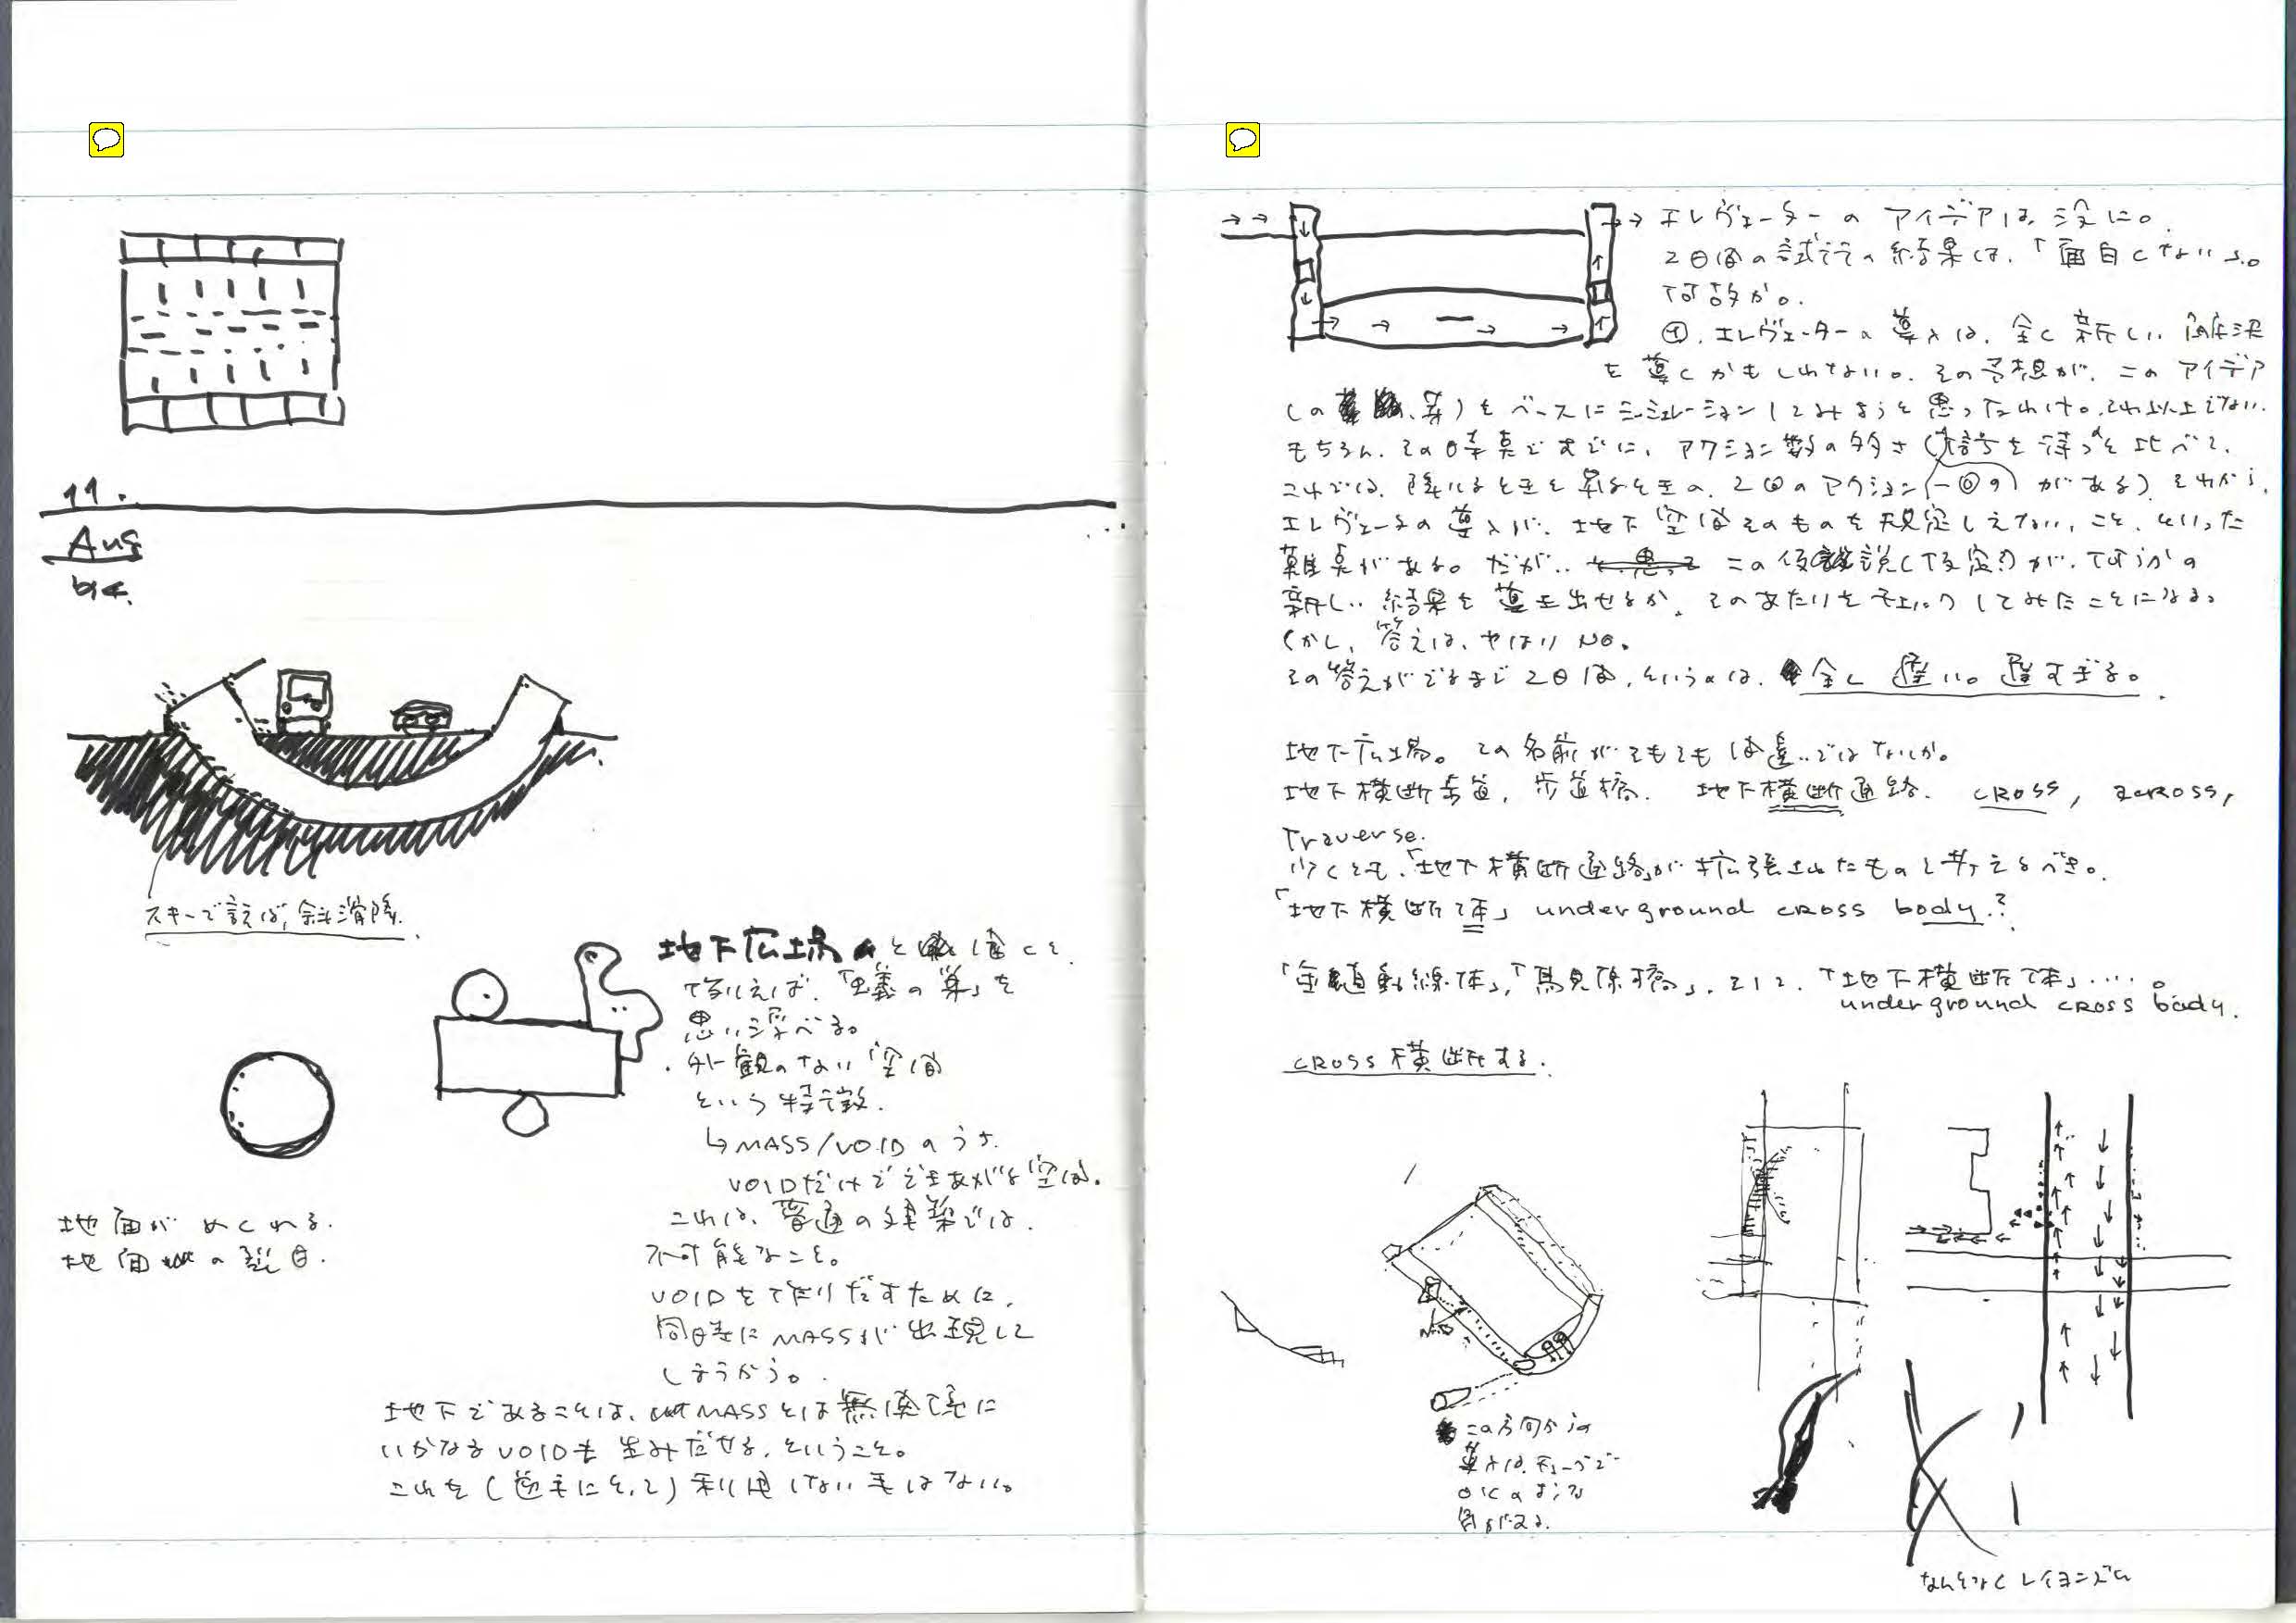 11.
Aug
スキーで言えば、斜滑降.
地下広場 と 聞くと.
例えば、「蟻の巣」を
思い浮べる。
・外観のない「空間
という特徴.
↳ MASS/VOID のうち.
VOIDだけでできあがる空間.
これは、普通の建築では.
不可能なこと。
VOIDを作りだすために、
同時にMASSが出現して
しまうから。
地下であることは、MASSとは無関係に
いかなるVOIDも生みだせる、ということ。
これを(逆手にとって)利用しない手はない。
地面がめくれる.
地面の裂目.
エレヴェーターのアイデアは没に。
2日間の試行の結果は、「面白くない」。
何故か。
①. エレヴェーターの導入は、全く新しい解決
を導くかもしれない。その予想が、このアイデア
をベースにシミュレーションしてみようと思ったわけ。それ以上でない.
もちろん、その時点ですでに、アクション数の多さ(信号を待つと比べて、
これでは、降りるときと昇るときの、2回のアクション(一回の)がある)、それから、
エレヴェータの導入が、地下空間そのものを規定しえない、こと、といった
難点がある。だが、この仮説(仮定)が、なにかの
新しい結果を導き出せるか、そのあたりをチェックしてみたことになる。
しかし、答えは、やはりNO。
その答えがでるまで2日間、というのは、全く遅い。遅すぎる。
地下広場。この名前がそもそも間違いではないか。
地下横断歩道, 歩道橋. 地下横断通路. CROSS, aCROSS,
Traverse.
少くとも、「地下横断通路」が拡張されたものと考えるべき。
「地下横断体」 underground cross body.?
「馬見原橋」、そして、「地下横断体」‥‥。
underground cross body.
CROSS 横断する.
この方向からの
導入は、チューブで
OKのような
気がする.
なんとなくレイヨニズム